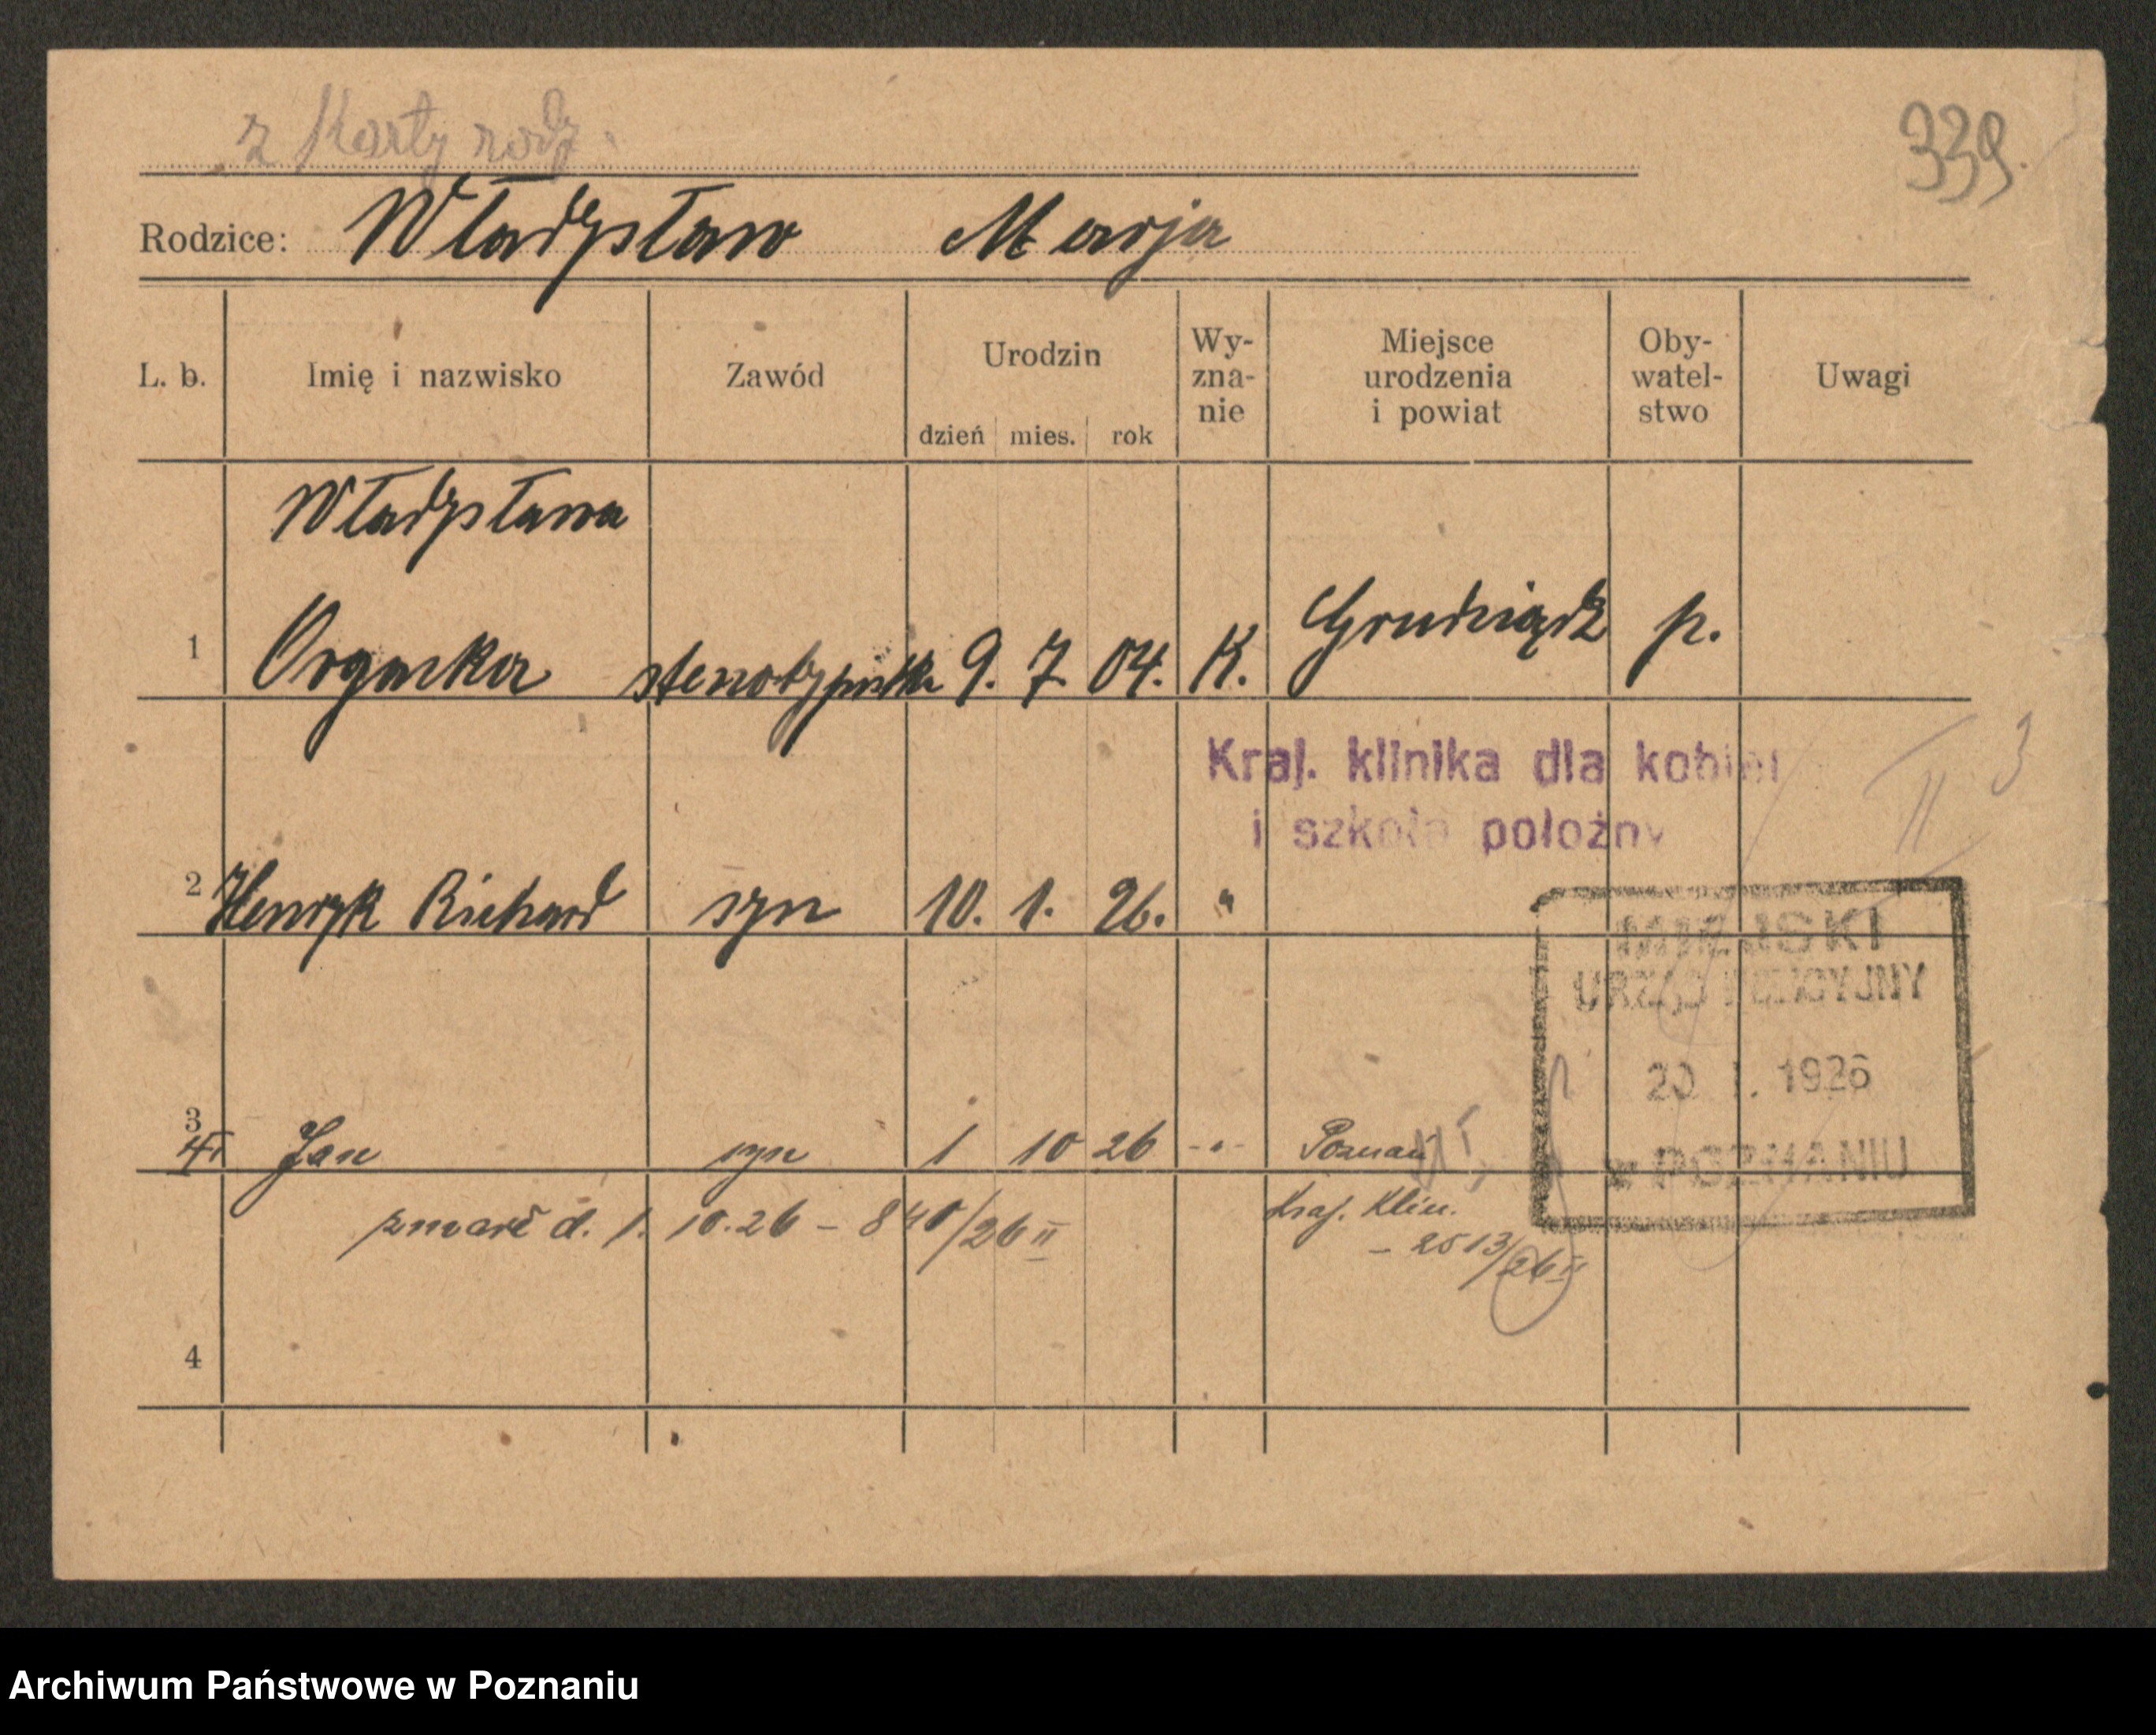 z Karty rodz.
339.
Rodzice: Władysław Marja
L. b. Imię i nazwisko Zawód Urodzin dzień mies. rok Wy-zna-nie Miejsce urodzenia i powiat Oby-watel-stwo Uwagi
Władysława
1 Organka stenotypistka 9. 7. 04. K. Grudziądz p.
Kraj. klinika dla kobiet
i szkoła położny
II 3
2 Henryk Richard syn 10. 1. 26. "
MIEJSKI
URZĄD POLICYJNY
20 1. 1926
w POZNANIU
3
4 Jan syn 1 10 26 -"- Poznań
zmarł d. 1. 10. 26 – 840/26 II Kraj. Klin.
– 2513/26 II
4
Archiwum Państwowe w Poznaniu